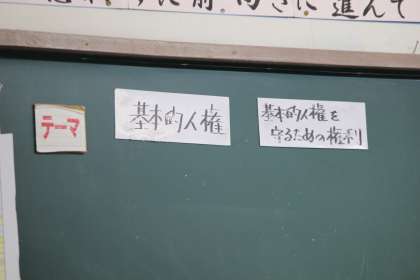 前向きに進んで
テーマ
基本的人権
基本的人権を
守るための権利